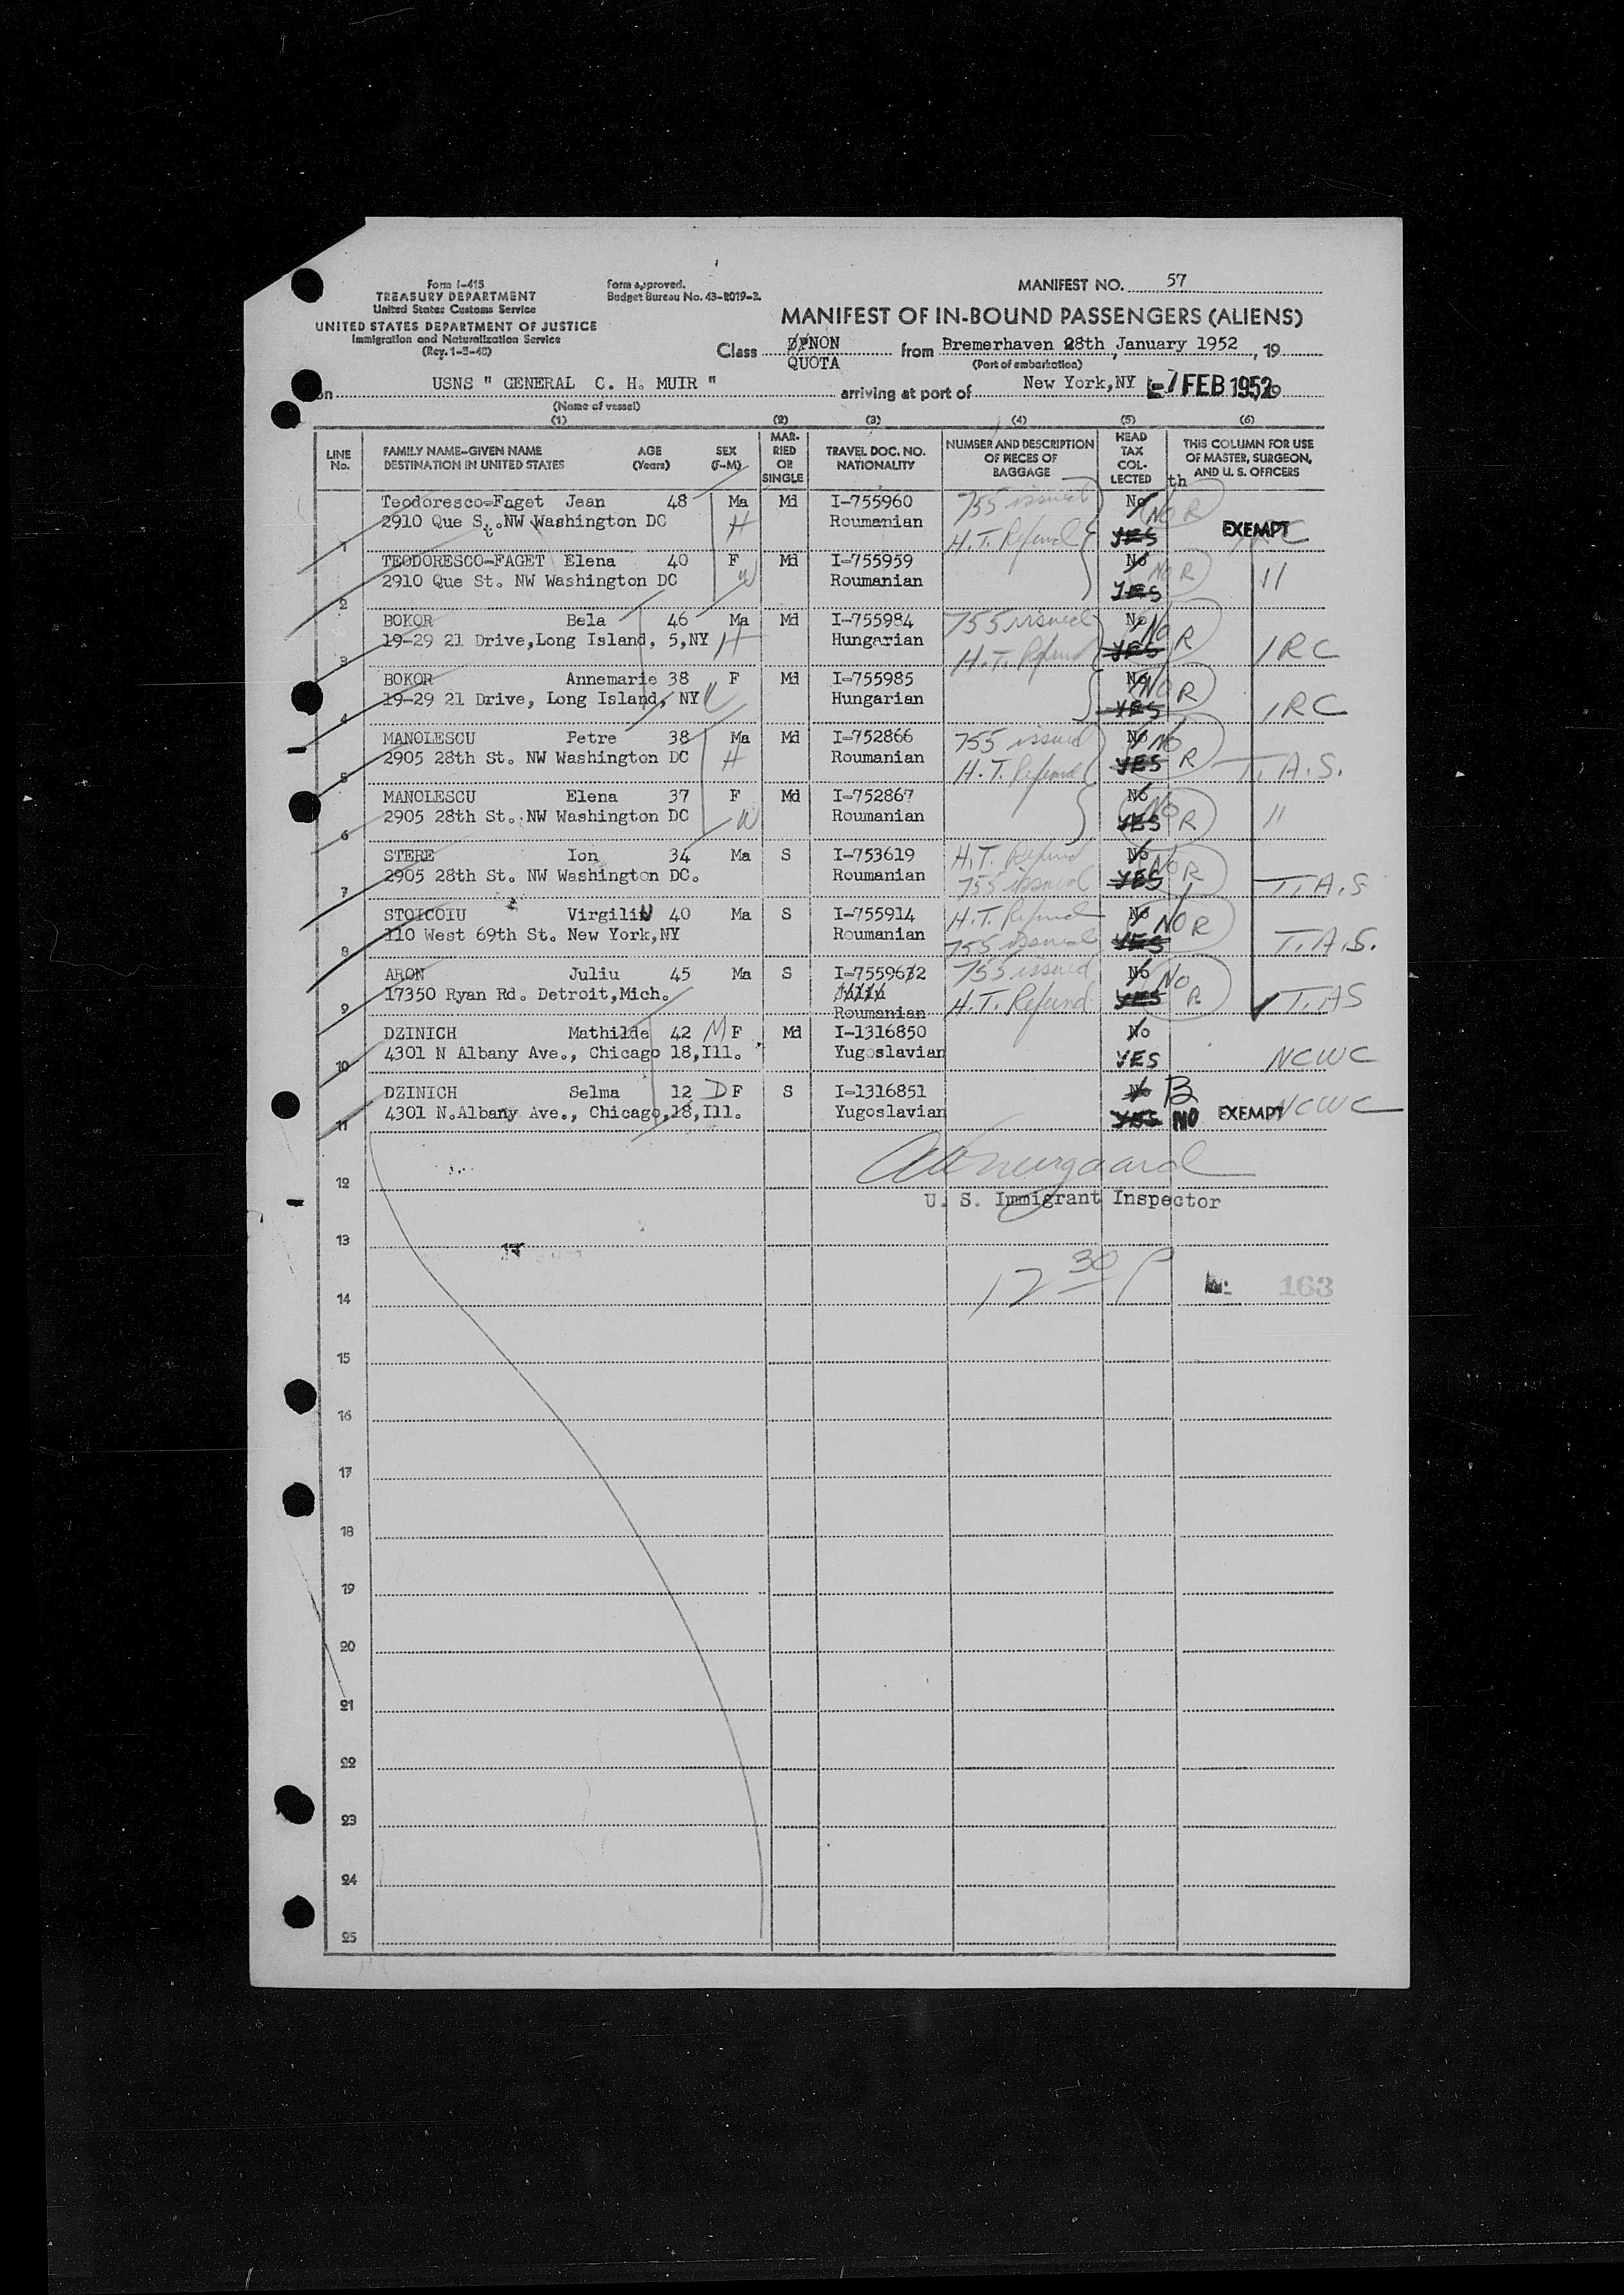 Form I-415
TREASURY DEPARTMENT
United States Customs Service
UNITED STATES DEPARTMENT OF JUSTICE
Immigration and Naturalization Service
(Rev. 1-5-48)
Form approved.
Budget Bureau No. 43-R019-2.
MANIFEST NO. 57
MANIFEST OF IN-BOUND PASSENGERS (ALIENS)
Class NON QUOTA from Bremerhaven 28th, January 1952, 19
(Port of embarkation)
on USNS " GENERAL C. H. MUIR " arriving at port of New York,NY 7 FEB 1952
(Name of vessel)
(1) (2) (3) (4) (5) (6)
LINE No. FAMILY NAME-GIVEN NAME DESTINATION IN UNITED STATES AGE (Years) SEX (F-M) MARRIED OR SINGLE TRAVEL DOC. NO. NATIONALITY NUMBER AND DESCRIPTION OF PIECES OF BAGGAGE HEAD TAX COLLECTED THIS COLUMN FOR USE OF MASTER, SURGEON, AND U. S. OFFICERS
th
1 Teodoresco-Faget Jean 48 Ma Md I-755960 755 issued No NO R
2910 Que St. NW Washington DC H Roumanian H.T. Refund YES EXEMPT
2 TEODORESCO-FAGET Elena 40 F Md I-755959 No NO R
2910 Que St. NW Washington DC W Roumanian YES "
3 BOKOR Bela 46 Ma Md I-755984 755 issued No NO R
19-29 21 Drive,Long Island, 5,NY H Hungarian H.T. Refund YES IRC
4 BOKOR Annemarie 38 F Md I-755985 No NO R
19-29 21 Drive, Long Island, NY W Hungarian YES IRC
5 MANOLESCU Petre 38 Ma Md I-752866 755 issued No NO R
2905 28th St. NW Washington DC H Roumanian H.T. Refund YES T.A.S.
6 MANOLESCU Elena 37 F Md I-752867 No NO R
2905 28th St. NW Washington DC W Roumanian YES "
7 STERE Ion 34 Ma S I-753619 H.T. Refund No NO R
2905 28th St. NW Washington DC. Roumanian 755 issued YES T.A.S
8 STOICOIU Virgiliu 40 Ma S I-755914 H.T. Refund No NO R
110 West 69th St. New York,NY Roumanian 755 issued YES T.A.S.
9 ARON Juliu 45 Ma S I-755962 755 issued No NO R
17350 Ryan Rd. Detroit,Mich. Roumanian H.T. Refund YES T.AS
10 DZINICH Mathilde 42 M F Md I-1316850 No
4301 N Albany Ave., Chicago 18,Ill. Yugoslavian YES NCWC
11 DZINICH Selma 12 D F S I-1316851 No B
4301 N.Albany Ave., Chicago,18,Ill. Yugoslavian YES NO EXEMPT NCWC
12
U. S. Immigrant Inspector
13
12 30 P
14 163
15
16
17
18
19
20
21
22
23
24
25